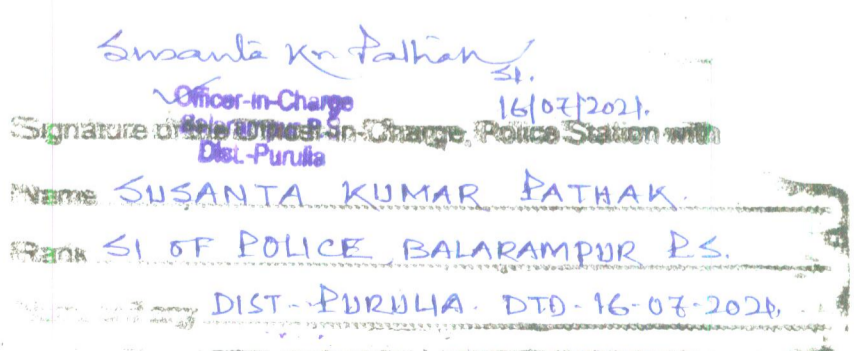 Susanta Kr Pathak
SI.
16/07/2021.
Officer-in-Charge
Balarampur P.S.
Dist.-Purulia
Signature of the Officer-in-Charge, Police Station with
Name SUSANTA KUMAR PATHAK.
Rank SI OF POLICE, BALARAMPUR P.S.
DIST-PURULIA. DTD-16-07-2021.